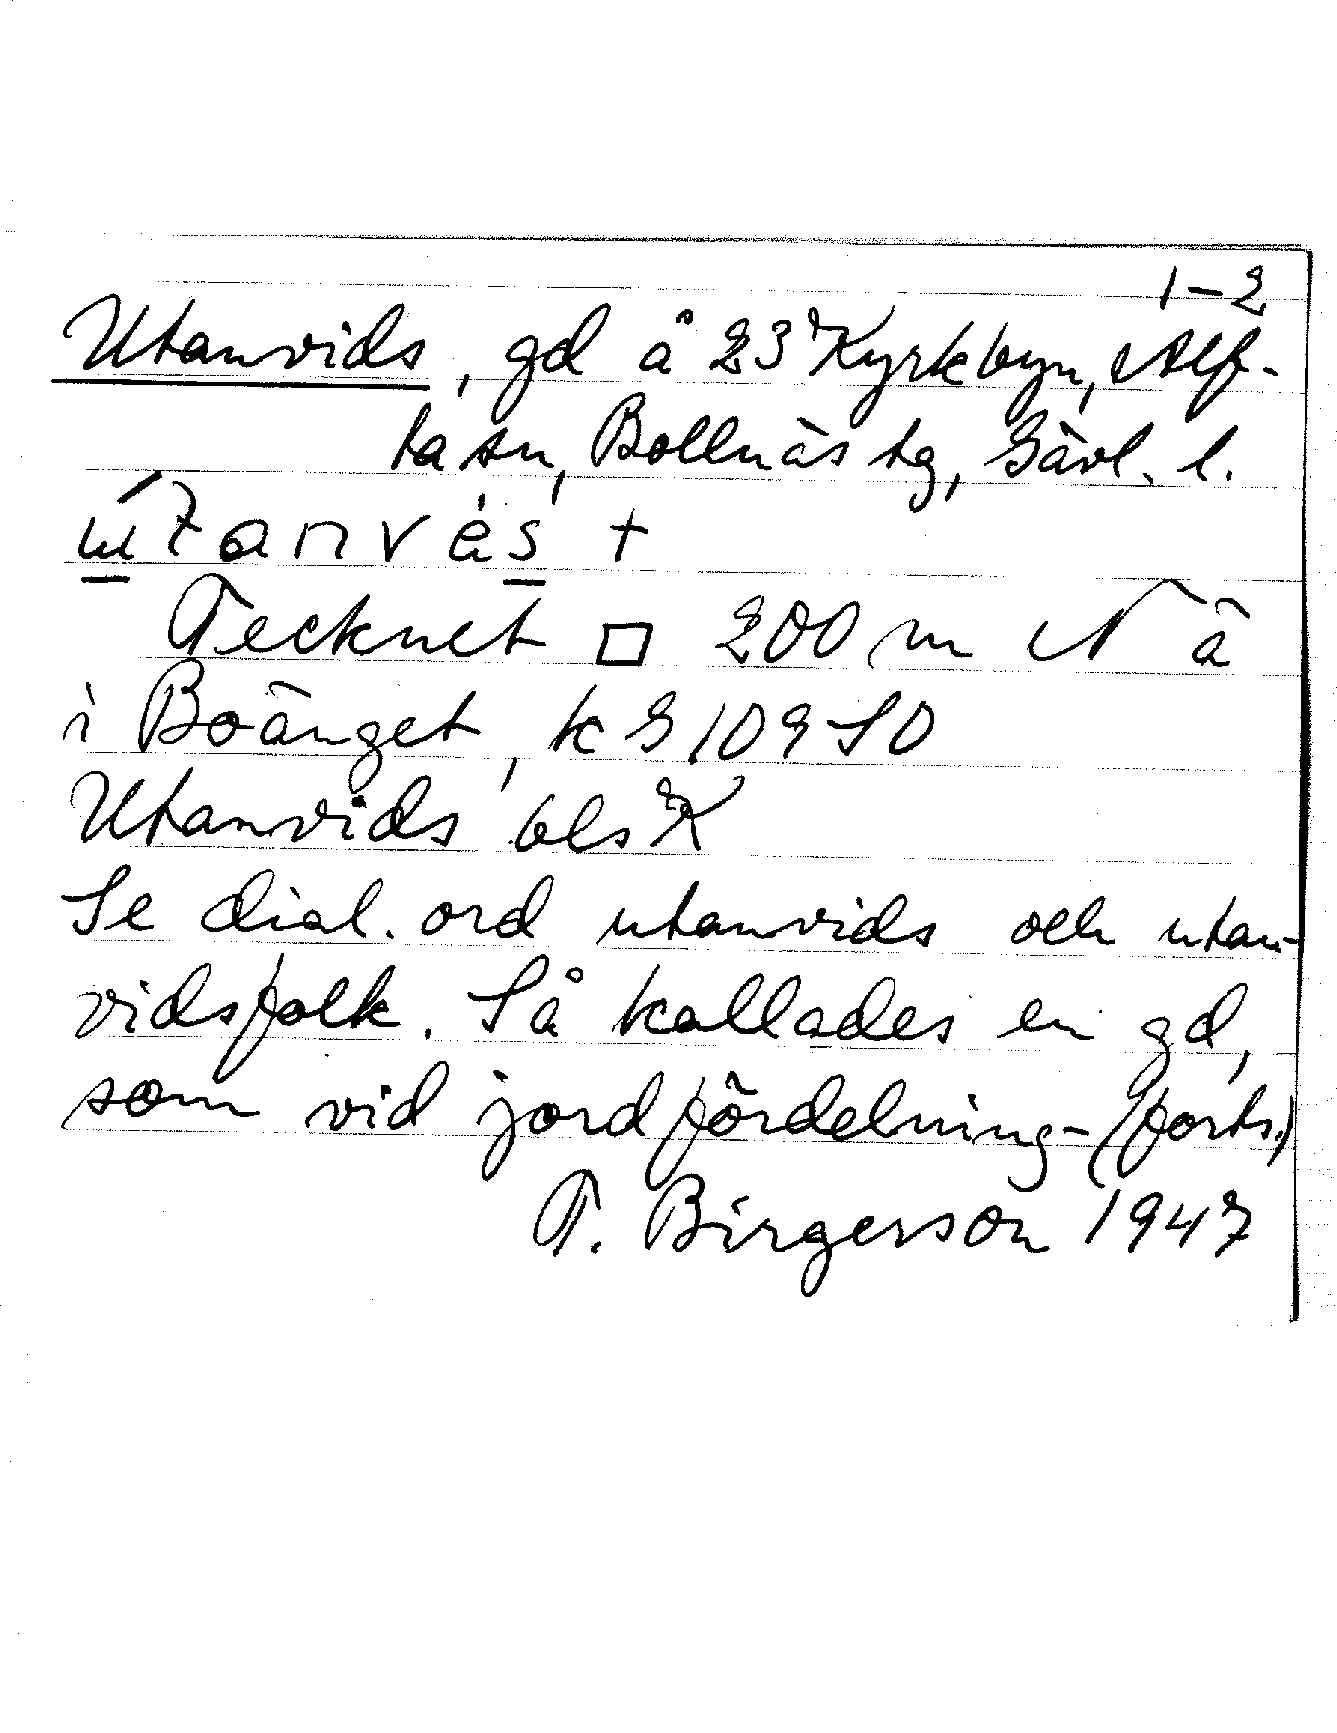 1-2
Utanvids, gd å 23 Kyrkbyn, Alf-
ta sn, Bollnäs tg, Gävl. l.
Tecknet □ 200 m N ä
i Boänget, k G 109 SO
Utanvids bls K
Se dial. ord utanvids och utan-
vidsfolk. Så kallades en gd,
som vid jordfördelning- (forts.)
T. Birgerson 1947